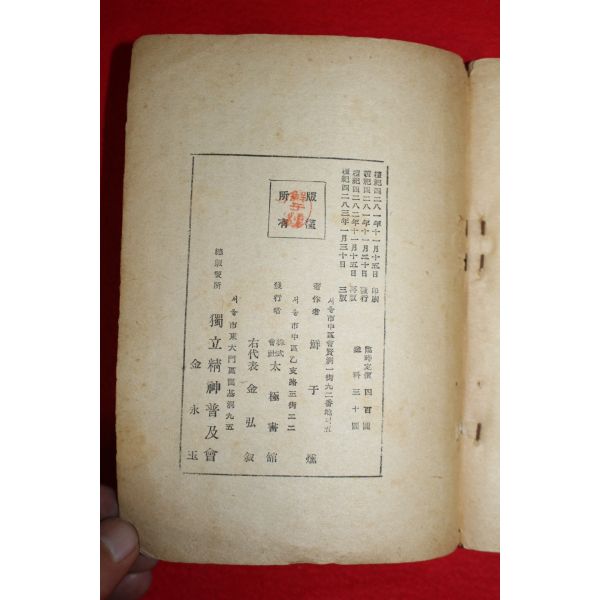 檀紀四二八一年十一月十五日 印刷
檀紀四二八一年十一月二十日 發行
檀紀四二八二年十一月十五日 再版
檀紀四二八三年一月三十日 三版
臨時定價 四百圓
送料 三十圓
版權
所有
서울市中區會賢洞一街九二番地의五
著作者 鮮于燻
서울市中區乙支路三街二二
發行者 株式會社 太極書館
右代表 金弘敍
서울市東大門區
總販賣所 獨立精神普及會
金永玉